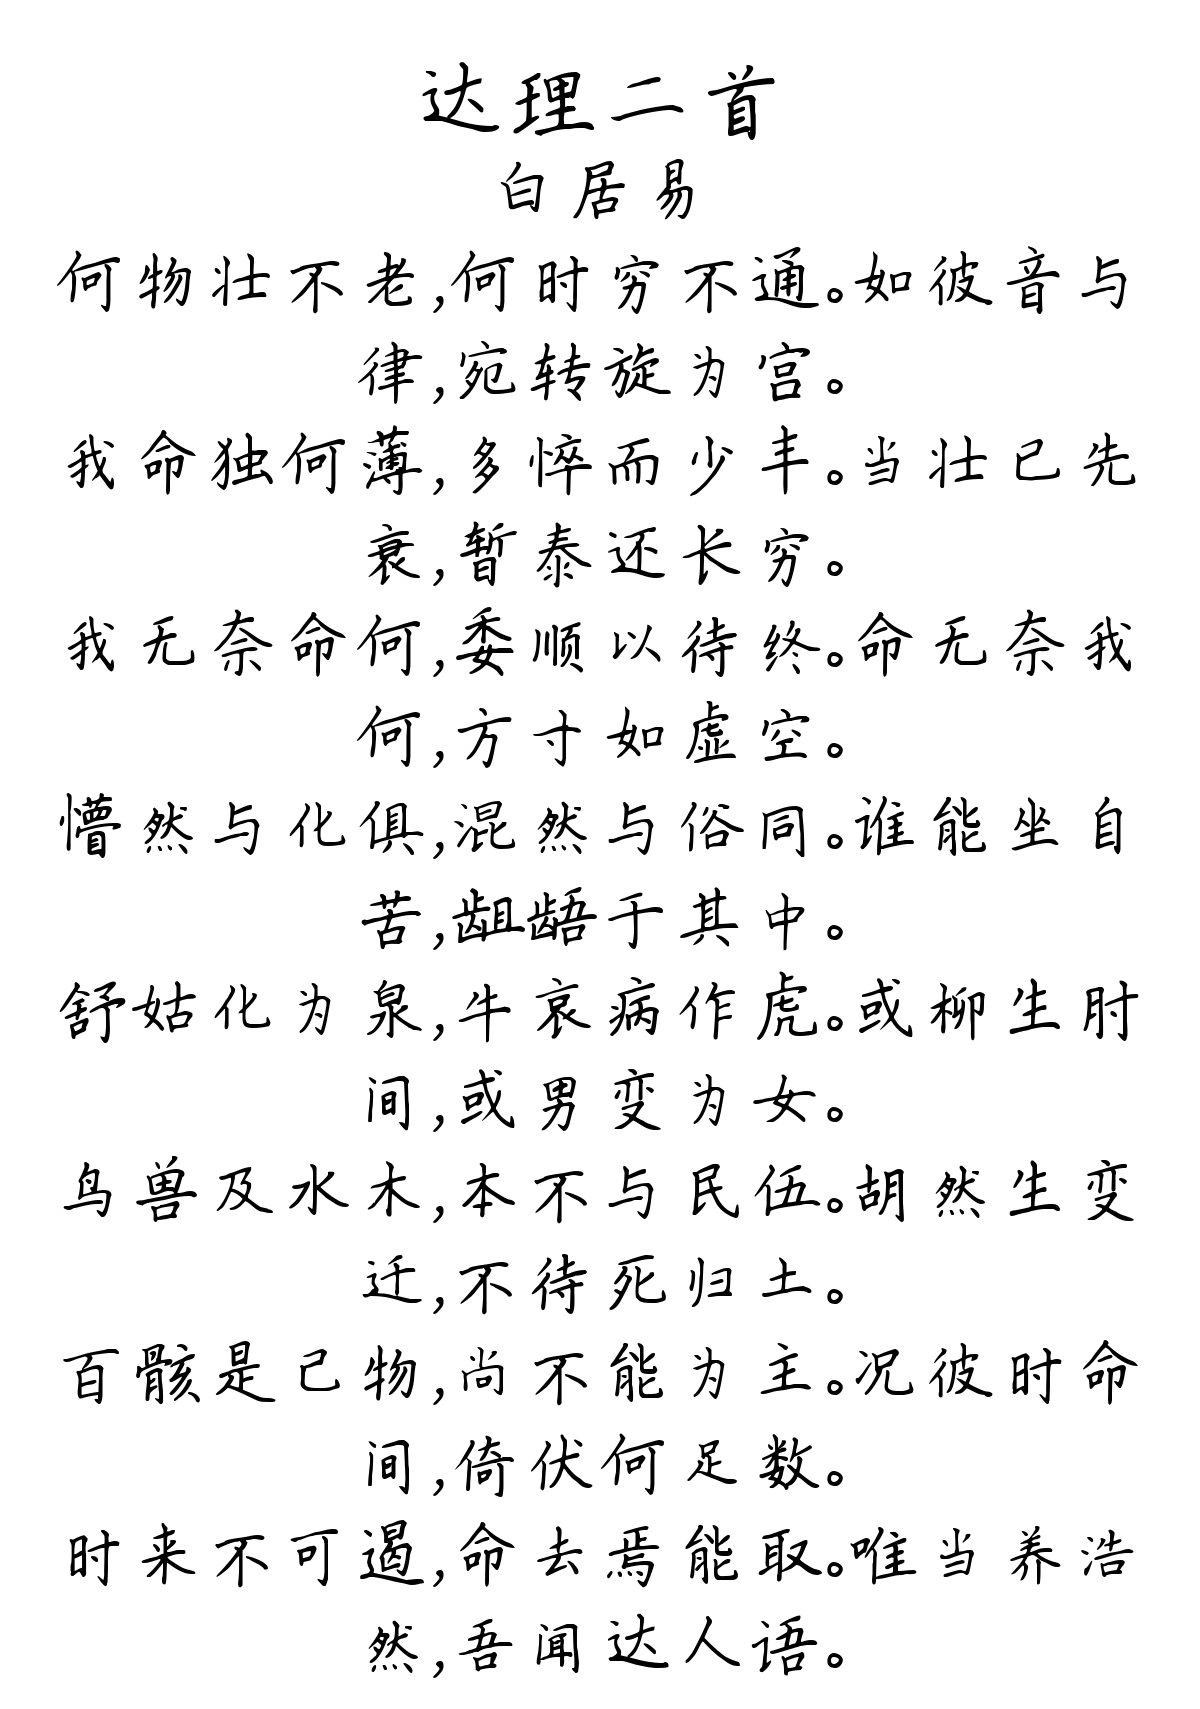 达理二首
白居易
何物壮不老,何时穷不通。如彼音与
律,宛转旋为宫。
我命独何薄,多悴而少丰。当壮已先
衰,暂泰还长穷。
我无奈命何,委顺以待终。命无奈我
何,方寸如虚空。
懵然与化俱,混然与俗同。谁能坐自
苦,龃龉于其中。
舒姑化为泉,牛哀病作虎。或柳生肘
间,或男变为女。
鸟兽及水木,本不与民伍。胡然生变
迁,不待死归土。
百骸是己物,尚不能为主。况彼时命
间,倚伏何足数。
时来不可遏,命去焉能取。唯当养浩
然,吾闻达人语。